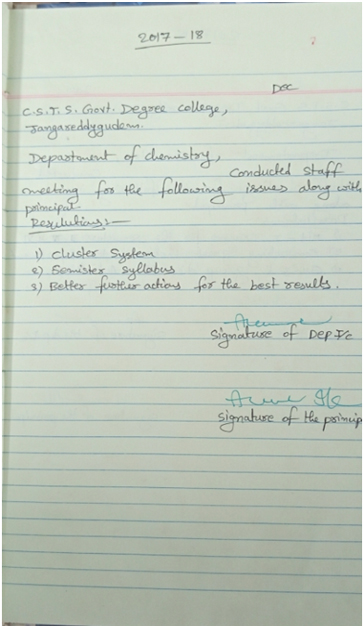 2017-18
Dec
C.S.T.S. Govt. Degree college,
Jangareddygudem.
Department of chemistry,
Conducted staff
meeting for the following issues along with
principal.
Resulutions:-
1) Cluster System
2) Semister syllabus
3) Better further actions for the best results.
signature of Dep I/c
signature of the princip